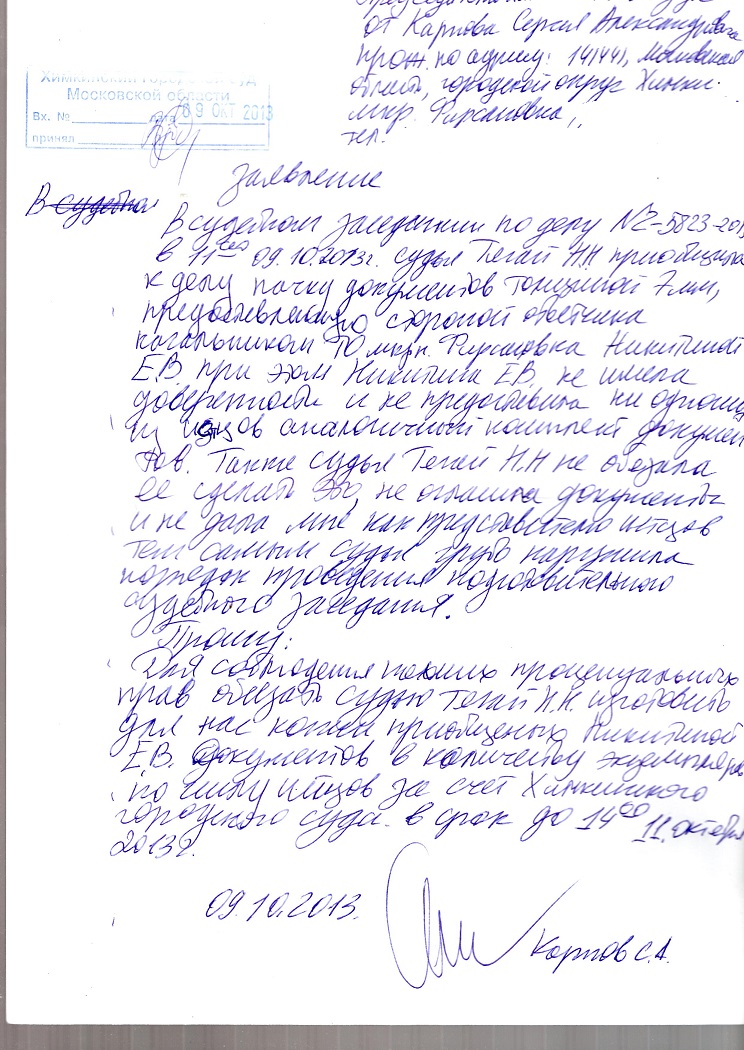 от Карпова Сергея Александровича
прож. по адресу: 141441, Московская
область, городской округ Химки
мкр. Фирсановка,,
тел.
Химкинский городской суд
Московской области
Вх. № 09 ОКТ 2013
принял
Заявление
В судебном
В судебном заседании по делу №2-5823-2013
в 11 час 09.10.2013г. судья Тегай Н.Н. приобщила
к делу пачку документов толщиной 7мм,
предоставленную стороной ответчика
начальником ТО мкрн. Фирсановка Никитиной
Е.В. при этом Никитина Е.В. не имела
доверенности и не предоставила ни одному
из истцов аналогичный комплект докумен
тов. Также судья Тегай Н.Н не обязала
ее сделать это, не огласила документы
и не дала мне как представителю истцов
тем самым судья грубо нарушила
порядок проведения подготовительного
судебного заседания.
Прошу:
Для соблюдения наших процессуальных
прав обязать судью Тегай Н.Н. изготовить
для нас копии приобщенных Никитиной
Е.В. документов в количестве экземпляров
по числу истцов за счет Химкинского
городского суда в срок до 14 00 11 октября
2013г.
09.10.2013.
Карпов С.А.